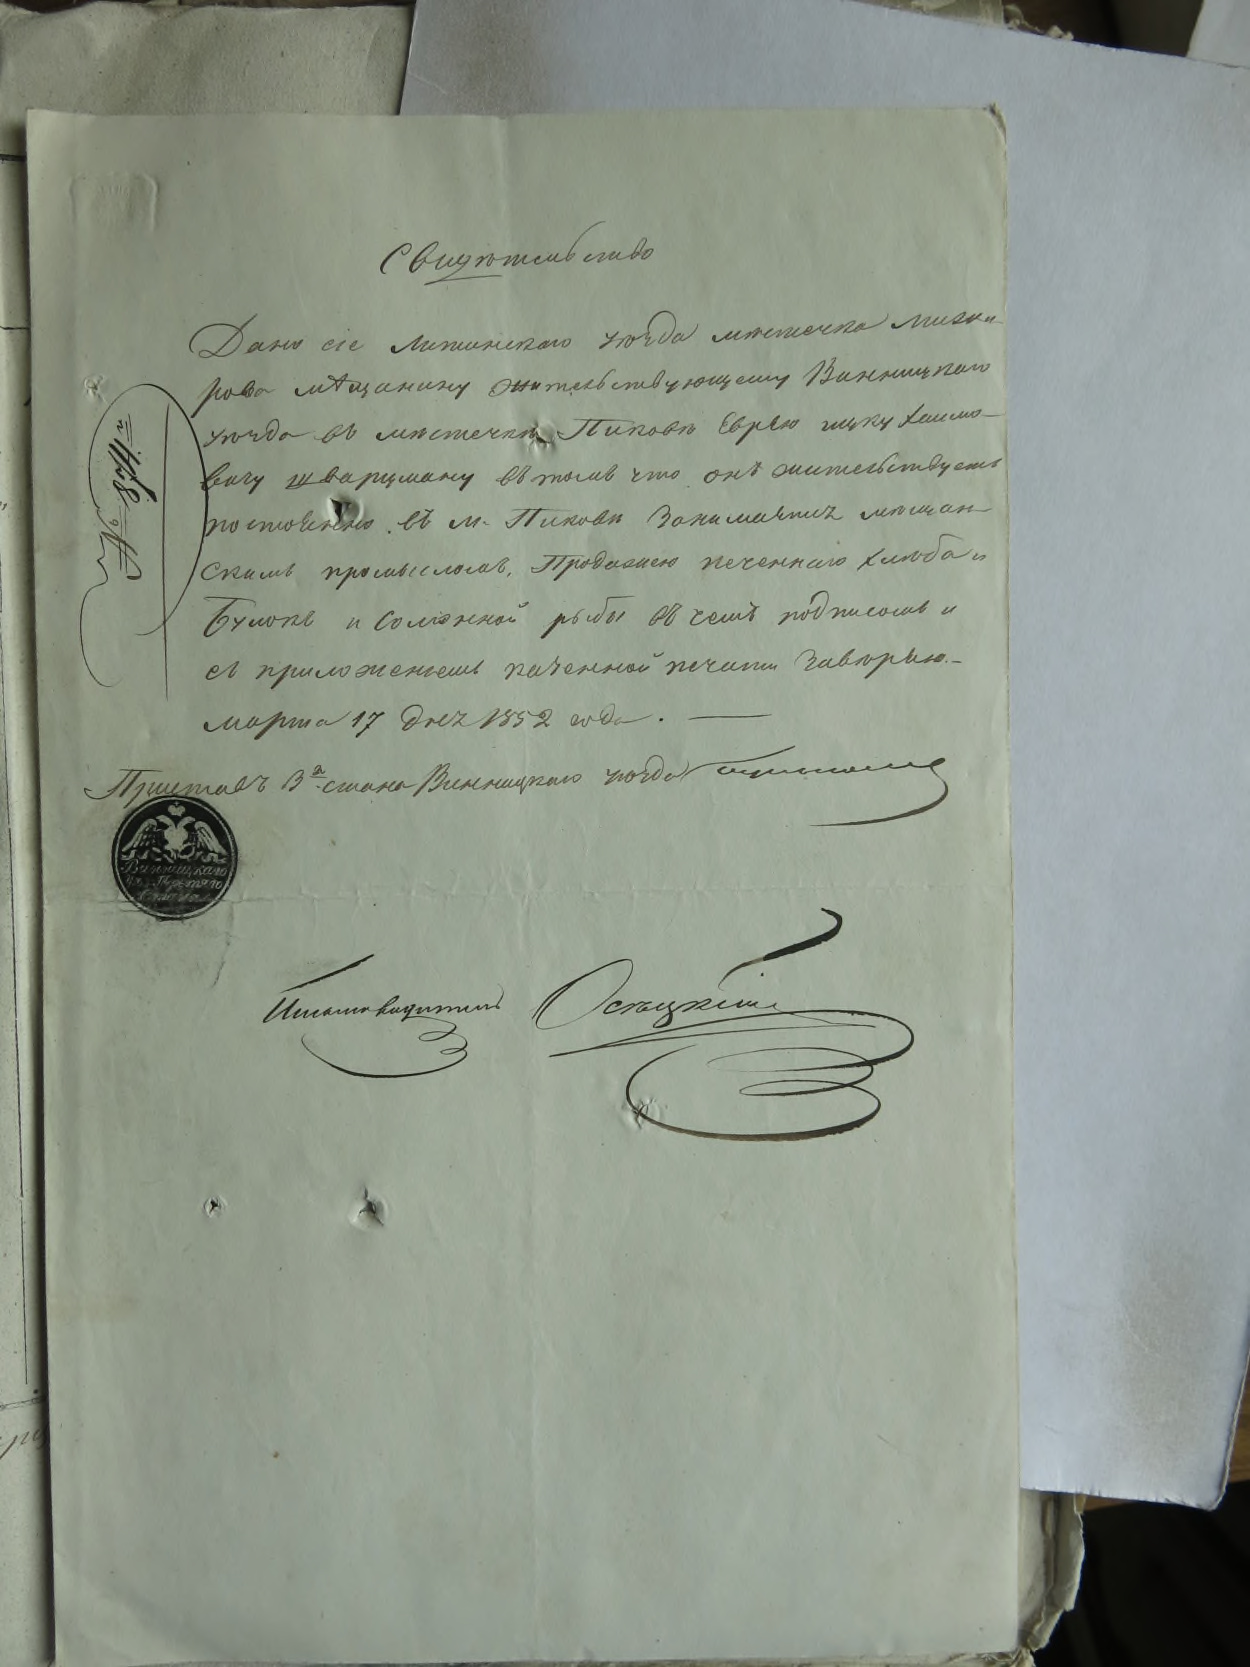 Свидѣтельство
Дано сіе Литинскаго уѣзда мѣстечка Мизя-
кова мѣщанину жительствующему Винницкаго
уѣзда въ мѣстечкѣ Пиковѣ Еврѣю Ицку Хаимо-
вичу Шварцману въ томъ что онъ жительствуетъ
постоянно въ м. Пиковѣ Занимаясь мѣщан-
скимъ промысломъ, Продажею печеннаго хлѣба и
Булокъ и Соленной рыбы въ чемъ подписомъ и
съ приложеніемъ казенной печати Завѣрѣю.-
марта 17 дня 1852 года. —
Приставъ 3го стана Винницкаго уѣзда
Винницкаго
уѣз. Третяго
Стана
Письмоводитель Осѣцкій
№ 1148